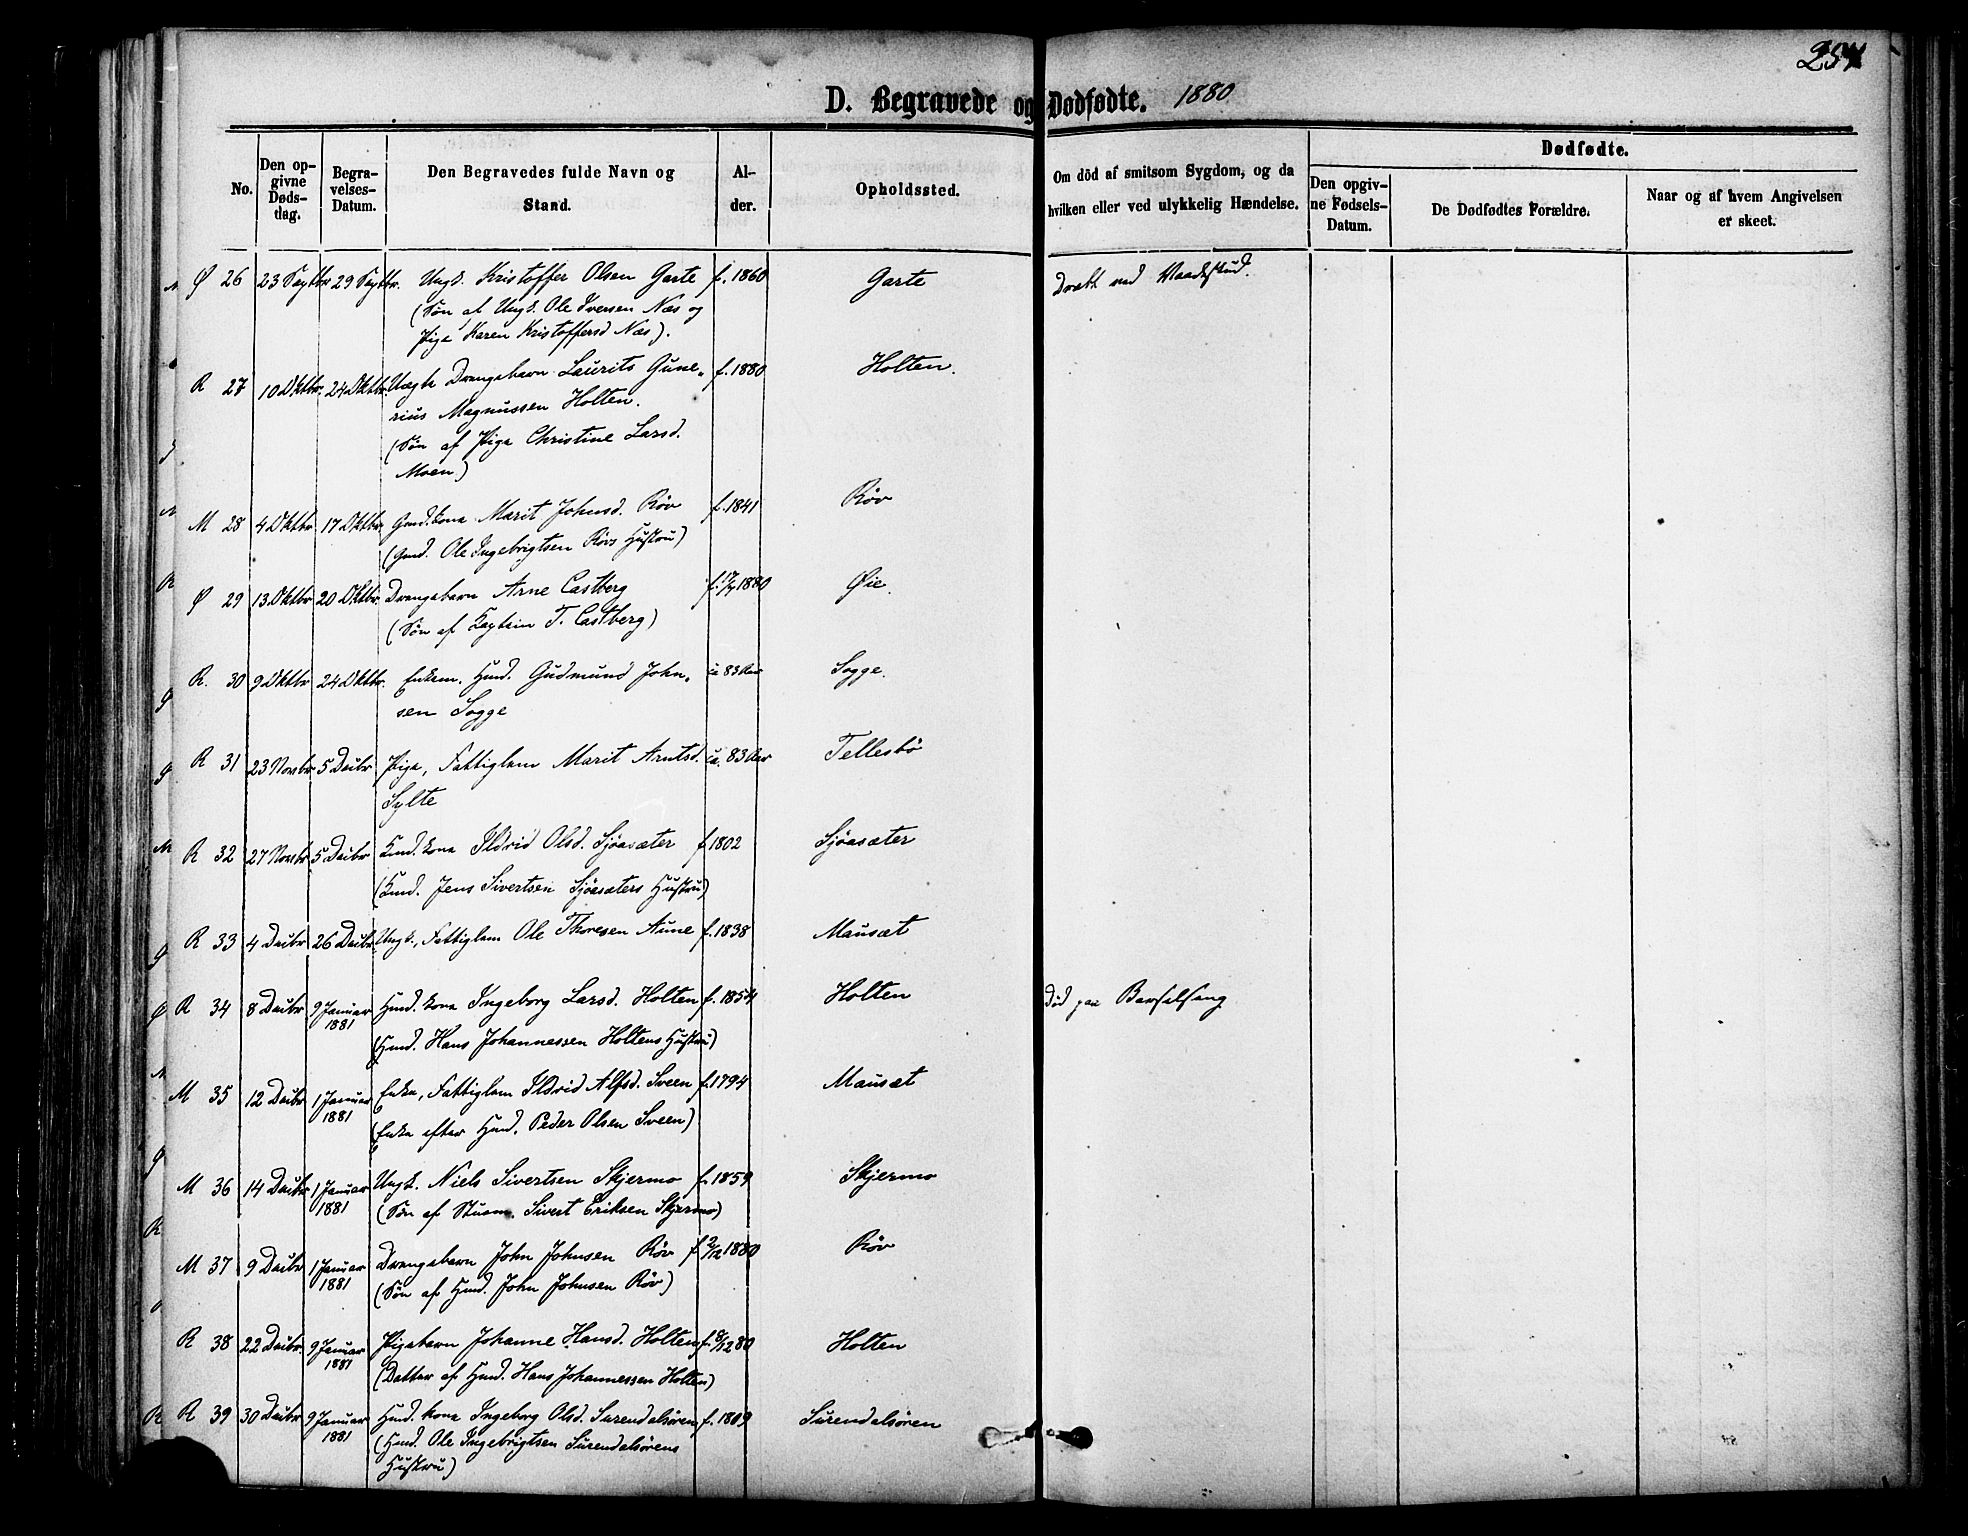 254
D. Begravede og Dødfødte. 1880
No.
Den op-
givne
Døds-
dag.
Begra-
velses-
Datum.
Den Begravedes fulde Navn og
Stand.
Al-
der.
Opholdssted.
Om död af smitsom Sygdom, og da
hvilken eller ved ulykkelig Hændelse.
Dødfødte.
Den opgiv-
ne Fødsels-
Datum.
De Dødfødtes Forældre.
Naar og af hvem Angivelsen
er skeet.
Ø 26 23 Septbr 29 Septbr. Ungk. Kristoffer Olsen Garte f. 1860 Garte Dræbt ved Vaadeskud.
(Søn af Ungk. Ole Iversen Næs og
Pige Karen Kristoffersd Næs).
R 27 10 Oktbr. 24 Oktbr. Uægte Drengebarn Laurits Gune- f. 1880 Holten.
rius Magnussen Holten.
(Søn af Pige Christine Larsd.
Moen)
M 28 4 Oktbr. 17 Oktbr. Gmd.kona Marit Johnsd. Røv f. 1841 Røv
(Gmd. Ole Ingebrigtsen Røvs Hustru)
Ø 29 13 Oktbr 20 Oktbr. Drengebarn Arne Castberg 1880 Øie.
(Søn af Kaptein T. Castberg)
R. 30 9 Oktbr 24 Oktbr. Enkem. Hmd. Gudmund John- ca 83 Aar Sogge.
sen Sogge
R 31 23 Novbr 5 Decbr Pige, Fattiglem Marit Arntsd. ca. 83 Aar Tellesbø
Sylte
R 32 27 Novbr 5 Decbr Kmd.kona Ildrid Olsd. Sjøasæter f 1802 Sjøasæter
(Kmd. Jens Sivertsen Sjøasæters Hustru)
R 33 4 Decbr 26 Decbr. Ungk., Fattiglem Ole Thoresen Aune f. 1838 Mausæt
R 34 8 Decbr 9 Januar Hmd.kona Ingeborg Larsd. Holten f. 1854 Holten Død paa Barselseng
1881
(Hmd. Hans Johannessen Holtens Hustru)
M 35 12 Decbr 1 Januar Enke, Fattiglem Ildrid Alfsd. Sveen f. 1794 Mausæt
1881
(Enke efter Hmd. Peder Olsen Sveen)
M 36 14 Decbr 1 Januar Ungk. Niels Sivertsen Skjermo f. 1859 Skjermo
1881
(Søn af Stuem. Sivert Eriksen Skjermo)
M 37 9 Decbr 1 Januar Drengebarn John Johnsen Røv f. 2/12 1880 Røv
1881
(Søn af Hmd. John Johnsen Røv)
R 38 22 Decbr. 9 Januar Pigebarn Johanne Hansd. Holten f. 8/12 80 Holten
1881
(Datter af Hmd. Hans Johannessen Holten)
R 39 30 Decbr 9 Januar Hmd.kona Ingeborg Olsd. Surendalsøren f. 1809 Surendalsøren
1881
(Hmd. Ole Ingebrigtsen Surendalsørens
Hustru)